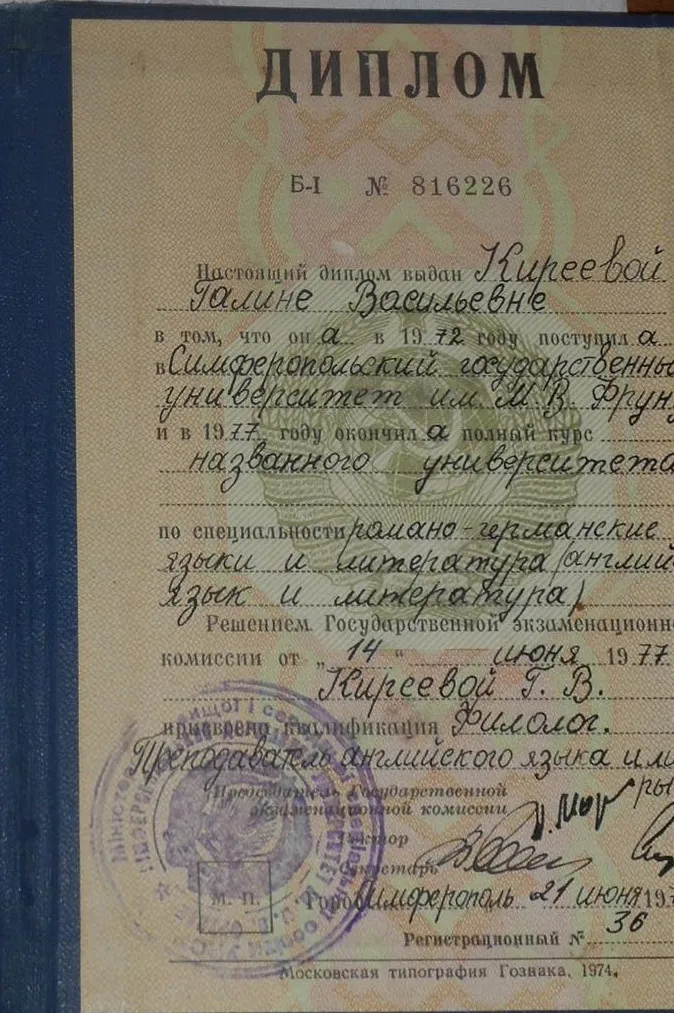 ДИПЛОМ
Б-I № 816226
Настоящий диплом выдан Киреевой
Галине Васильевне
в том, что он а в 1972 году поступил а
в Симферопольский государственны
университет им М. В. Фрун
и в 1977 году окончил а полный курс
названного университета
по специальности романо-германские
языки и литература (англий
язык и литература)
Решением Государственной экзаменационно
комиссии от „14“ июня 1977
Киреевой Г. В.
присвоена квалификация Филолог.
Преподаватель английского языка и ли
ры
Председатель Государственной
экзаменационной комиссии
Ректор
Секретарь
М. П.
Город Симферополь 21 июня 197
Регистрационный № 36
Московская типография Гознака, 1974.